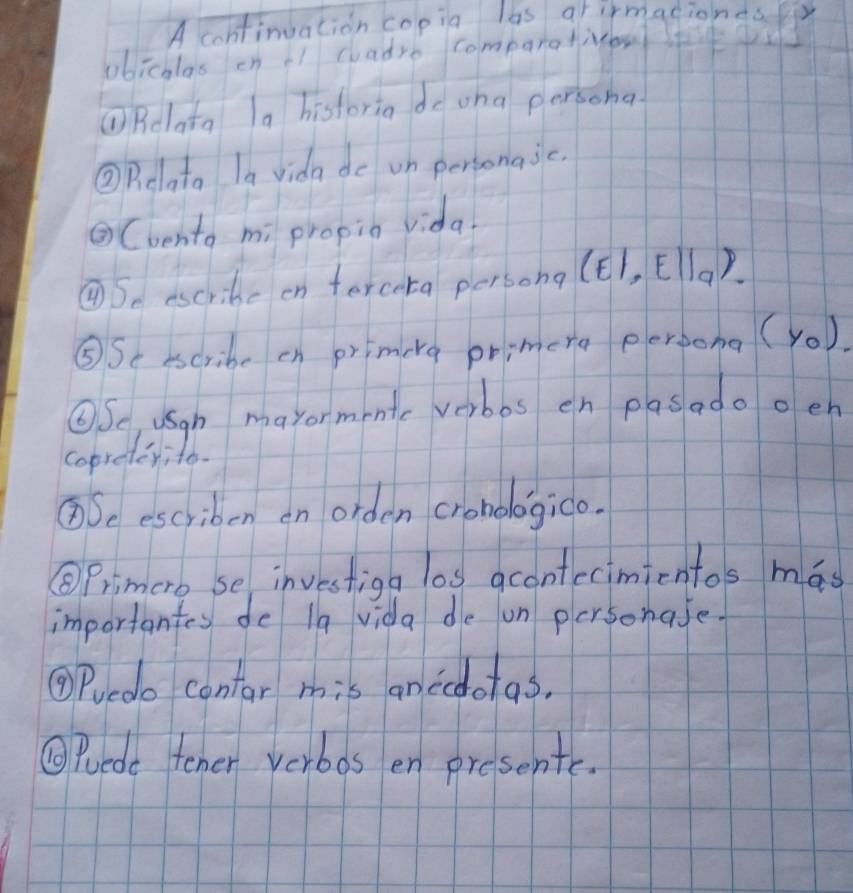 A continuación copia las afirmaciones y
ubicalas en el cuadro comparativo,
① Relata la historia de una persona.
② Relata la vida de un personaje.
③ Cuenta mi propia vida.
④ Se escribe en tercera persona (El, Ella).
⑤ Se escribe en primera primera persona (yo).
⑥ Se usan mayormente verbos en pasado o en
copretérito.
⑦ Se escriben en orden cronológico.
⑧ Primero se investiga los acontecimientos más
importantes de la vida de un personaje.
⑨ Puedo contar mis anécdotas.
⑩ Puede tener verbos en presente.